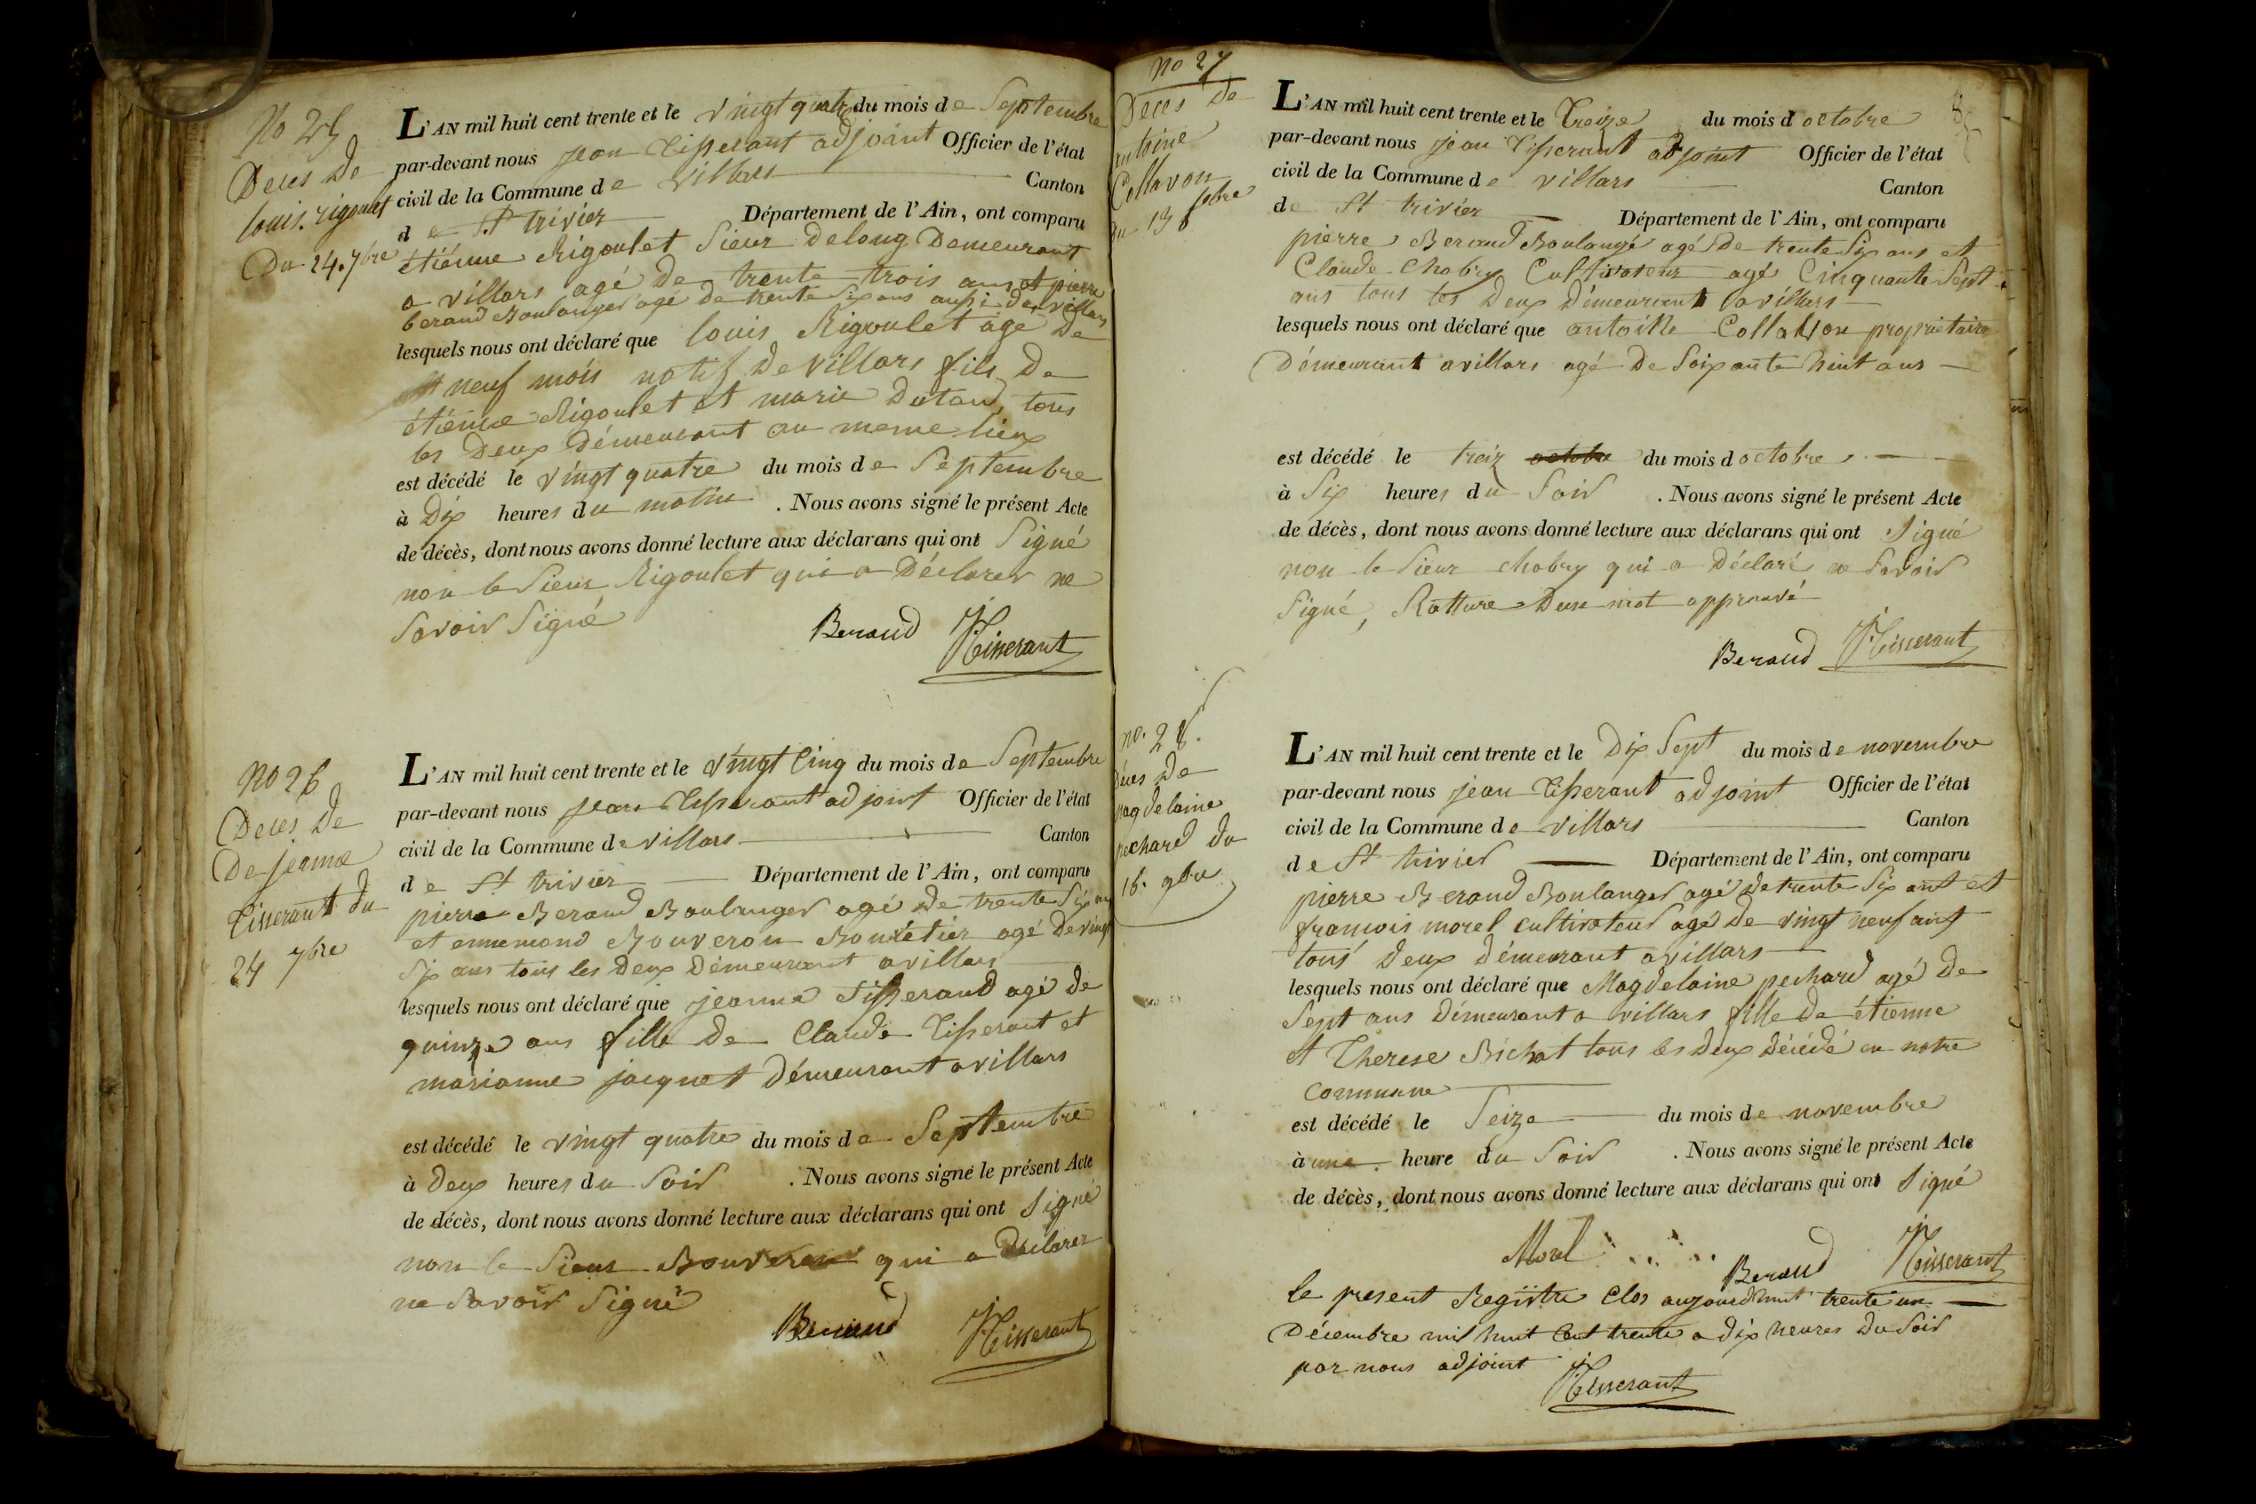 No 25
Deces De
louis. rigoulet
Du 24. 7bre
L'AN mil huit cent trente et le vingt quatre du mois de Septembre
par-devant nous jean Tisserant adjoint Officier de l'état
civil de la Commune de villars Canton
de St trivier Département de l'Ain, ont comparu
étiénne Rigoulet Sieur Delong Demeurant
a villars agé De trente trois ans et pierre
beraud Boulanger agé de trente Six ans aussi de villars
lesquels nous ont déclaré que louis Rigoulet agé De
neuf mois natif De villars fils De
étiénne Rigoulet et marie Dutand, tous
les Deux Démeurant au meme lieux
est décédé le vingt quatre du mois de Septembre
à Dix heures du matin . Nous avons signé le présent Acte
de décès, dont nous avons donné lecture aux déclarans qui ont Signé
non le Sieur Rigoulet qui a Déclarer ne
Savoir Signé
Beraud JTisserant
No 26
Deces De
De jeanne
Tisserant du
24 7bre
L'AN mil huit cent trente et le vingt Cinq du mois de Septembre
par-devant nous jean Tisserant adjoint Officier de l'état
civil de la Commune de villars Canton
de St trivier Département de l'Ain, ont comparu
pierre Beraud Boulanger agé De trente Six ans
et ennemond Bouveron agé De vingt
Six ans tous les Deux Démeurant a villars
lesquels nous ont déclaré que jeanne Tisserand agé de
quinze ans fille De Claude Tisserant et
marianne jacquet Démeurant a villars
est décédé le vingt quatre du mois de Septembre
à Deux heures du Soir . Nous avons signé le présent Acte
de décès, dont nous avons donné lecture aux déclarans qui ont Signé
non le Sieur Bouveron qui a Déclarer
ne Savoir Signé
Beraud JTisserant
No 27
Deces De
antoine
Collavon
du 13 8obre
L'AN mil huit cent trente et le Treize du mois d octobre
par-devant nous jean Tisserant adjoint Officier de l'état
civil de la Commune de villars Canton
de St trivier Département de l'Ain, ont comparu
pierre Beraud Boulangé agé De trente Six ans et
Claude Chabry Cultivateur agé Cinquante Sept
ans tous les Deux Démeurant a villars
lesquels nous ont déclaré que antoine Collavon propriétaire
Démeurant a villars agé De Soixante huit ans
est décédé le treiz octobre du mois d octobre
à Six heures du Soir . Nous avons signé le présent Acte
de décès, dont nous avons donné lecture aux déclarans qui ont Signé
non le Sieur chabry qui a Déclaré ne Savoir
Signé, Ratture Dun mot approuvé
Beraud JTisserant
no. 28.
Déces De
magdelaine
pechard du
16. 9bre
L'AN mil huit cent trente et le Dix Sept du mois de novembre
par-devant nous jean Tisserant adjoint Officier de l'état
civil de la Commune de villars Canton
de St trivier Département de l'Ain, ont comparu
pierre Beraud Boulanger agé De trente Six ans et
francois morel cultivateur agé De vingt neuf ans
tous Deux Démeurant a villars
lesquels nous ont déclaré que Magdelaine pechard agé De
Sept ans Démeurant a villars fille De étienne
et Therese Bichat tous les Deux Décédé en notre
Commune
est décédé le Seize du mois de novembre
à une heure du Soir . Nous avons signé le présent Acte
de décès, dont nous avons donné lecture aux déclarans qui ont Signé
Morel Beraud JTisserant
le present Registre Clos aujourdhuit trente un
Décembre mil huit Cent trente a dix heures Du Soir
par nous adjoint
JTisserant